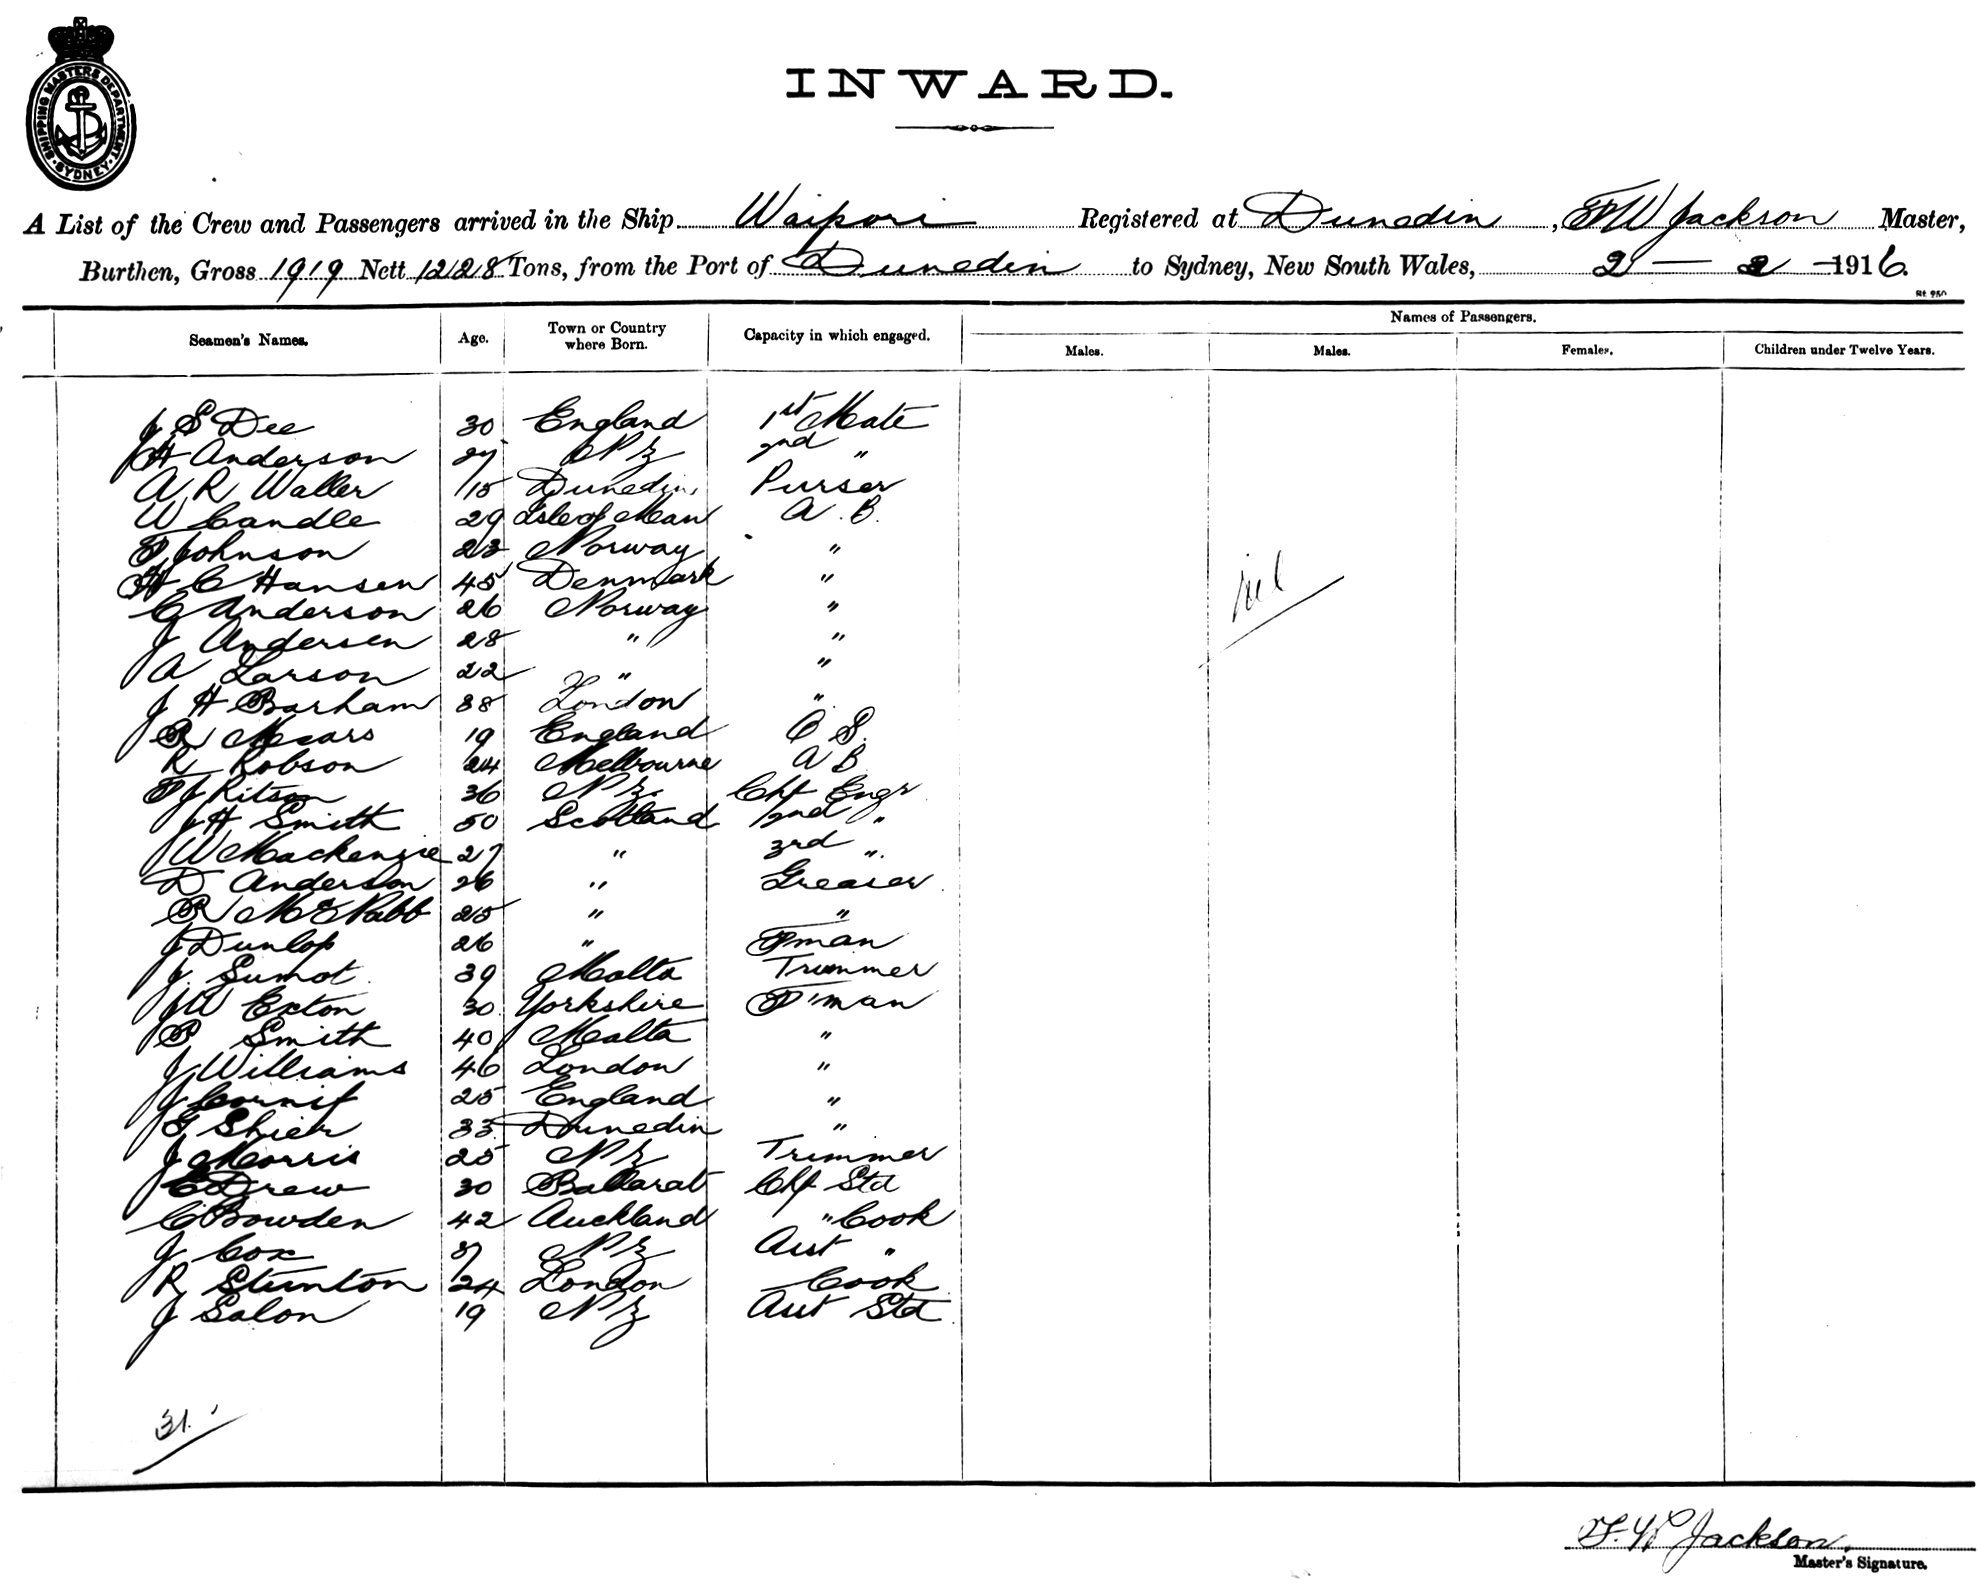 SHIPPING MASTERS DEPARTMENT · SYDNEY ·
INWARD.
A List of the Crew and Passengers arrived in the Ship Waipori Registered at Dunedin, F W Jackson Master,
Burthen, Gross 1919 Nett 1228 Tons, from the Port of Dunedin to Sydney, New South Wales, 2 – 2 – 1916.
St 950
Names of Passengers.
Seamen's Names. Age. Town or Country where Born. Capacity in which engaged. Males. Males. Females. Children under Twelve Years.
J S Dee 30 England 1st Mate
J H Anderson 27 N Z 2nd "
A R Waller 15 Dunedin Purser
W Candle 29 Isle of Man A. B.
F Johnson 23 Norway "
H C Hansen 45 Denmark "
C Anderson 26 Norway "
J Andersen 28 " "
A Larson 22 " "
J H Barham 38 London "
R Mears 19 England O S.
R Robson 24 Melbourne A B
F J Ritson 36 N Z. Chf Engr
J H Smith 50 Scotland 2nd "
W Mackenzie 27 " 3rd "
D Anderson 26 " Greaser
R McNabb 25 " "
J Dunlop 26 " Fman
J Gumot 39 Malta Trimmer
J W Exton 30 Yorkshire F'man
P Smith 40 Malta "
J Williams 46 London "
J 25 England "
G Shier 33 Dunedin "
J Morris 25 N Z Trimmer
E Drew 30 Ballarat Chf Std
C Bowden 42 Auckland " Cook
J Cox 37 N Z Asst "
R Stunton 24 London Cook
J Galon 19 N Z Asst Std
nil
31.
F. W Jackson.
Master's Signature.